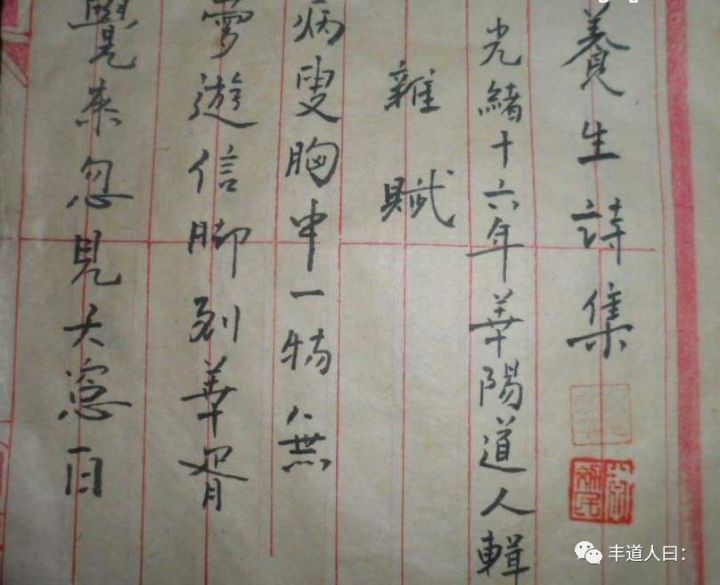 養生詩集
光緒十六年華陽道人輯
雜賦
病叟胸中一物無
夢遊信脚到華胥
覺來忽見天窓白
丰道人曰：